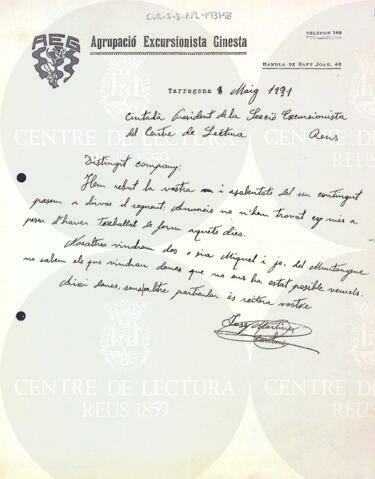 AEG
Agrupació Excursionista Ginesta
TELÈFON 384
RAMBLA DE SANT JOAN, 46
Tarragona 8 Maig 1931
Ciutadà President de la Secció Excursionista
del Centre de Lectura Reus
Distingit company:
Hem rebut la vostra i assabentats del seu contingut
passem a dir-vos el seguent. Anuncis no n'hem trovat cap més a
pesar d'haver treballat de ferm aquets dies.
Nosaltres vindrem dos o sia Miquel i jo, del Muntanyenc
no sabem els que vindran donçs que no ens ha estat posible veurels.
Aixi donçs, sens altre particular és reitera vostre
Josep Martinez
CENTRE DE LECTURA
REUS 1859